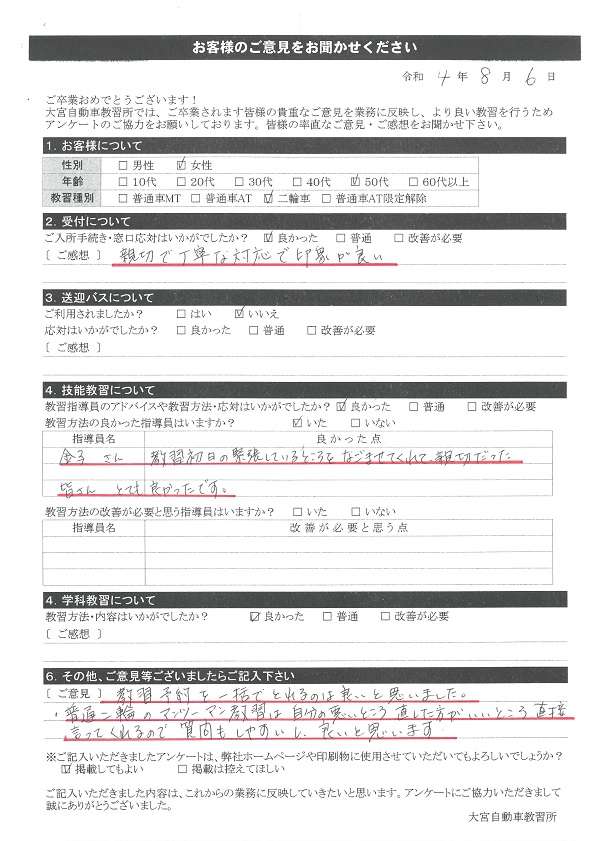 お客様のご意見をお聞かせください
令和 4 年 8 月 6 日
ご卒業おめでとうございます！
大宮自動車教習所では、ご卒業されます皆様の貴重なご意見を業務に反映し、より良い教習を行うため
アンケートのご協力をお願いしております。皆様の率直なご意見・ご感想をお聞かせ下さい。
1. お客様について
性別 □ 男性 ☑ 女性
年齢 □ 10代 □ 20代 □ 30代 □ 40代 ☑ 50代 □ 60代以上
教習種別 □ 普通車MT □ 普通車AT ☑ 二輪車 □ 普通車AT限定解除
2. 受付について
ご入所手続き・窓口応対はいかがでしたか？ ☑ 良かった □ 普通 □ 改善が必要
[ ご感想 ] 親切で丁寧な対応で印象が良い
3. 送迎バスについて
ご利用されましたか？ □ はい ☑ いいえ
応対はいかがでしたか？ □ 良かった □ 普通 □ 改善が必要
[ ご感想 ]
4. 技能教習について
教習指導員のアドバイスや教習方法・応対はいかがでしたか？ ☑ 良かった □ 普通 □ 改善が必要
教習方法の良かった指導員はいますか？ ☑ いた □ いない
指導員名 良かった点
金子 さん 教習初日の緊張しているところをなごませてくれて、親切だった
皆さん とても良かったです。
教習方法の改善が必要と思う指導員はいますか？ □ いた □ いない
指導員名 改善が必要と思う点
4. 学科教習について
教習方法・内容はいかがでしたか？ ☑ 良かった □ 普通 □ 改善が必要
[ ご感想 ]
6. その他、ご意見等ございましたらご記入下さい
[ ご意見 ] 教習予約を一括でとれるのは良いと思いました。
・普通二輪のマンツーマン教習は自分の悪いところ直した方がいいところ直接
言ってくれるので質問もしやすいし、良いと思います
※ご記入いただきましたアンケートは、弊社ホームページや印刷物に使用させていただいてもよろしいでしょうか？
☑ 掲載してもよい □ 掲載は控えてほしい
ご記入いただきました内容は、これからの業務に反映していきたいと思います。アンケートにご協力いただきまして
誠にありがとうございました。
大宮自動車教習所